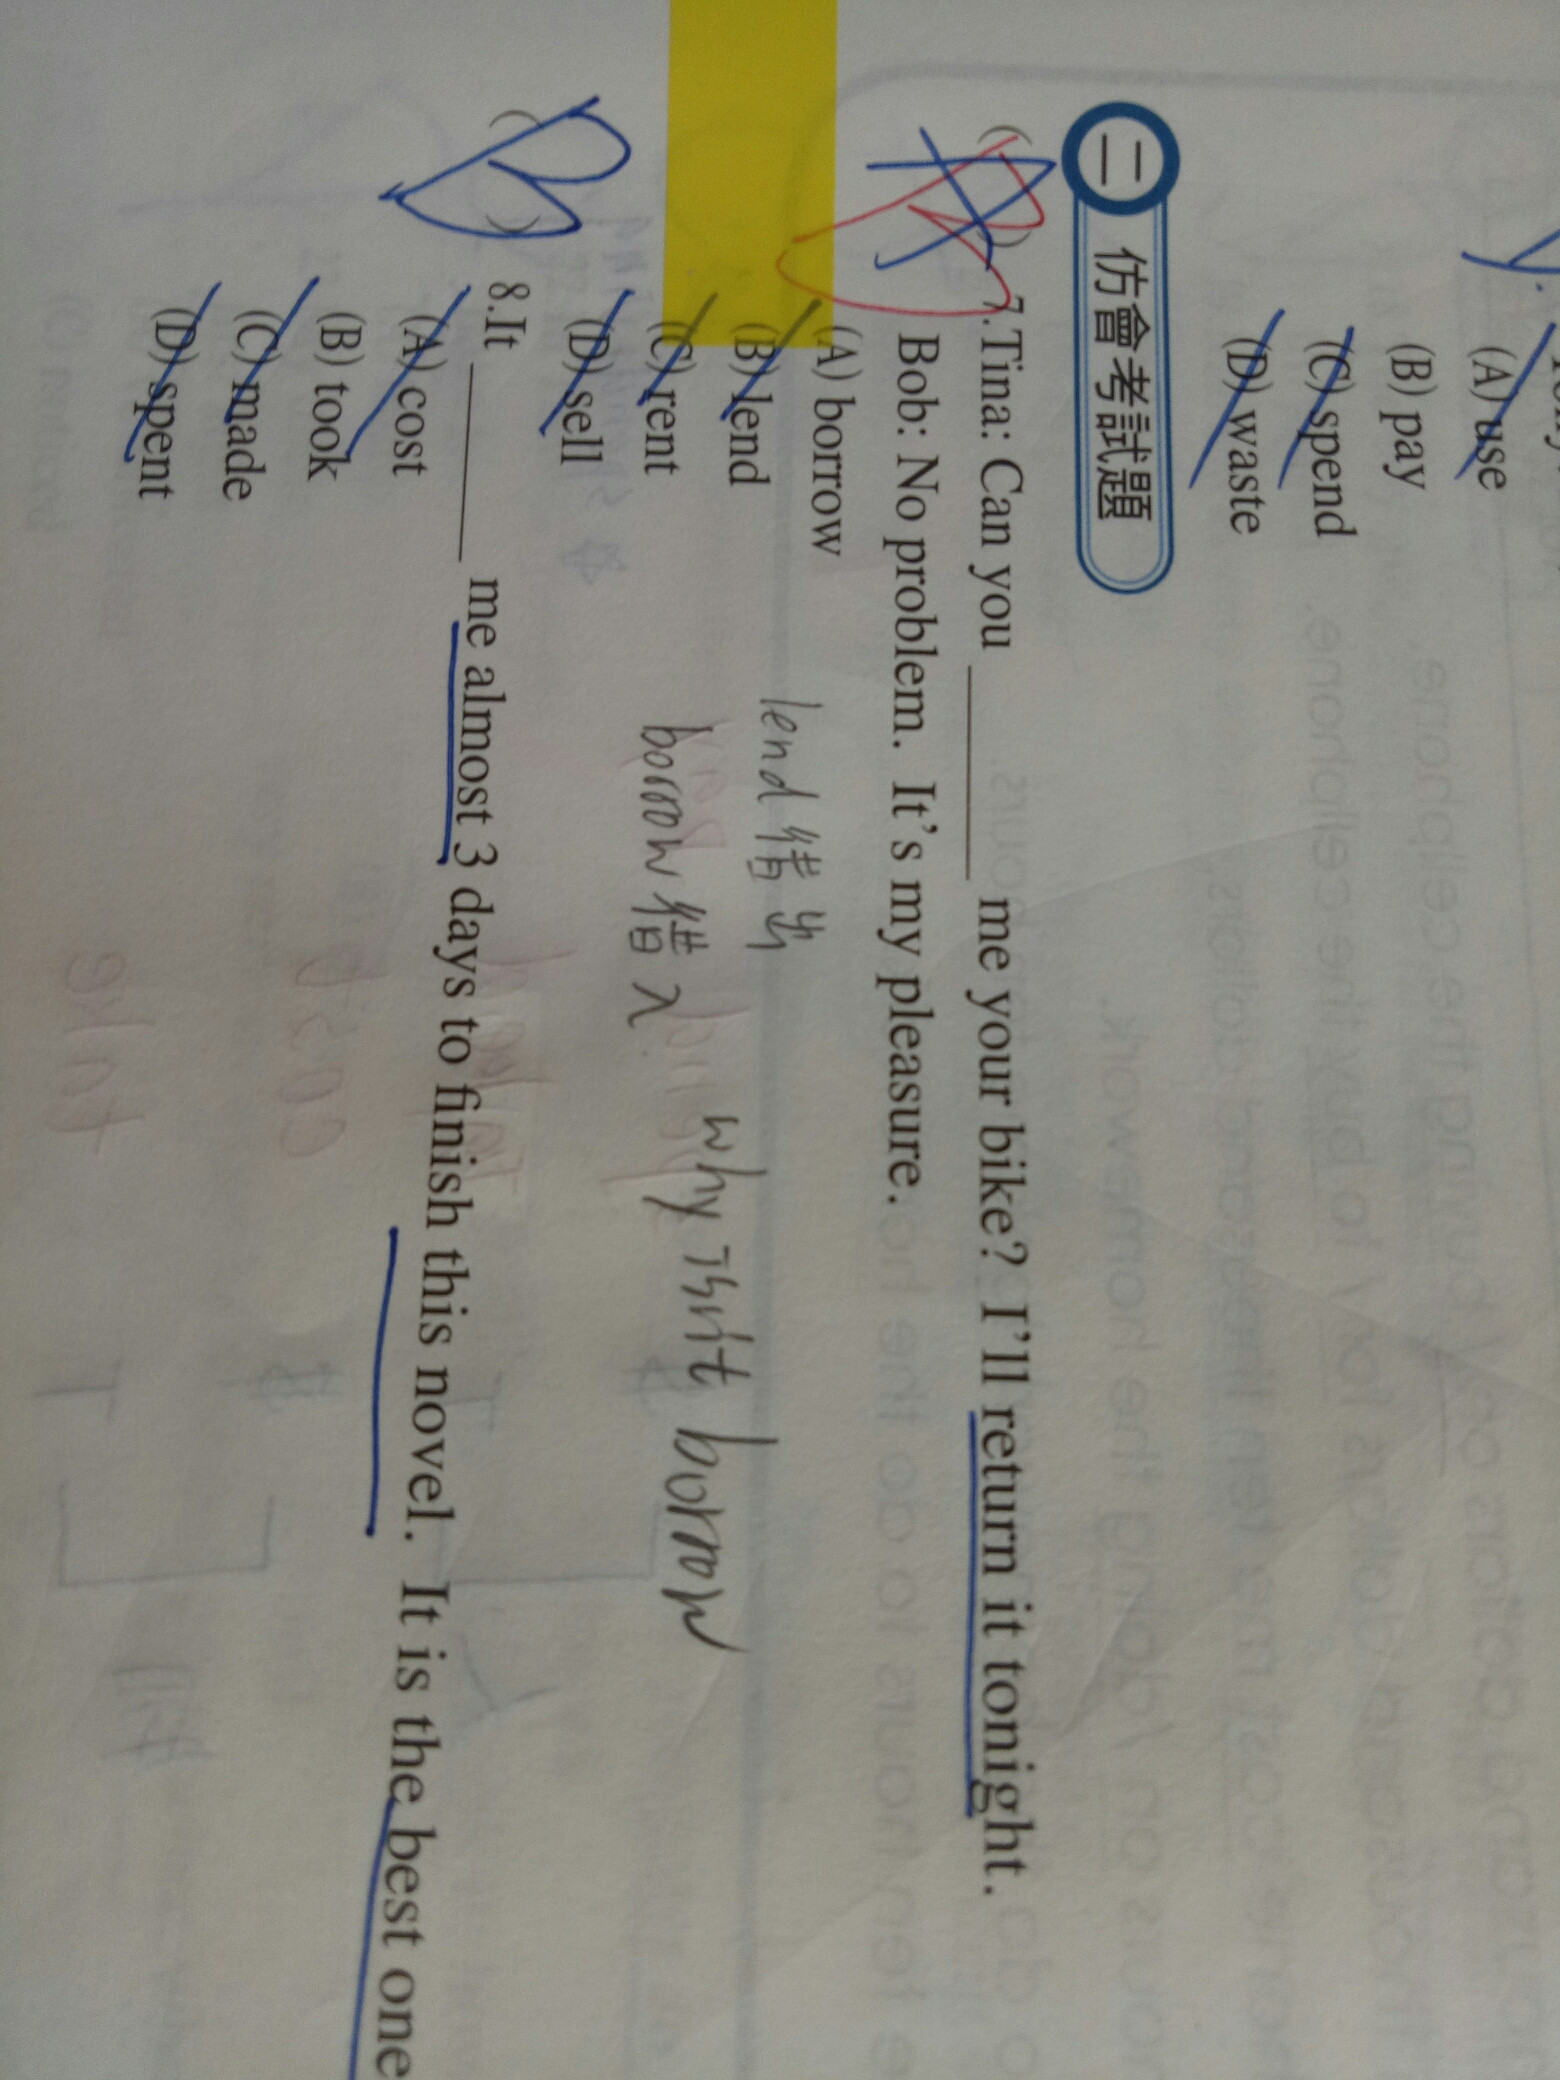 (A) use
(B) pay
(C) spend
(D) waste
二 仿會考試題
( B ) 7. Tina: Can you ______ me your bike? I'll return it tonight.
Bob: No problem. It's my pleasure.
(A) borrow
(B) lend
(C) rent
(D) sell
lend 借出
borrow 借入
why isn't borrow
( B ) 8. It ______ me almost 3 days to finish this novel. It is the best one
(A) cost
(B) took
(C) made
(D) spent